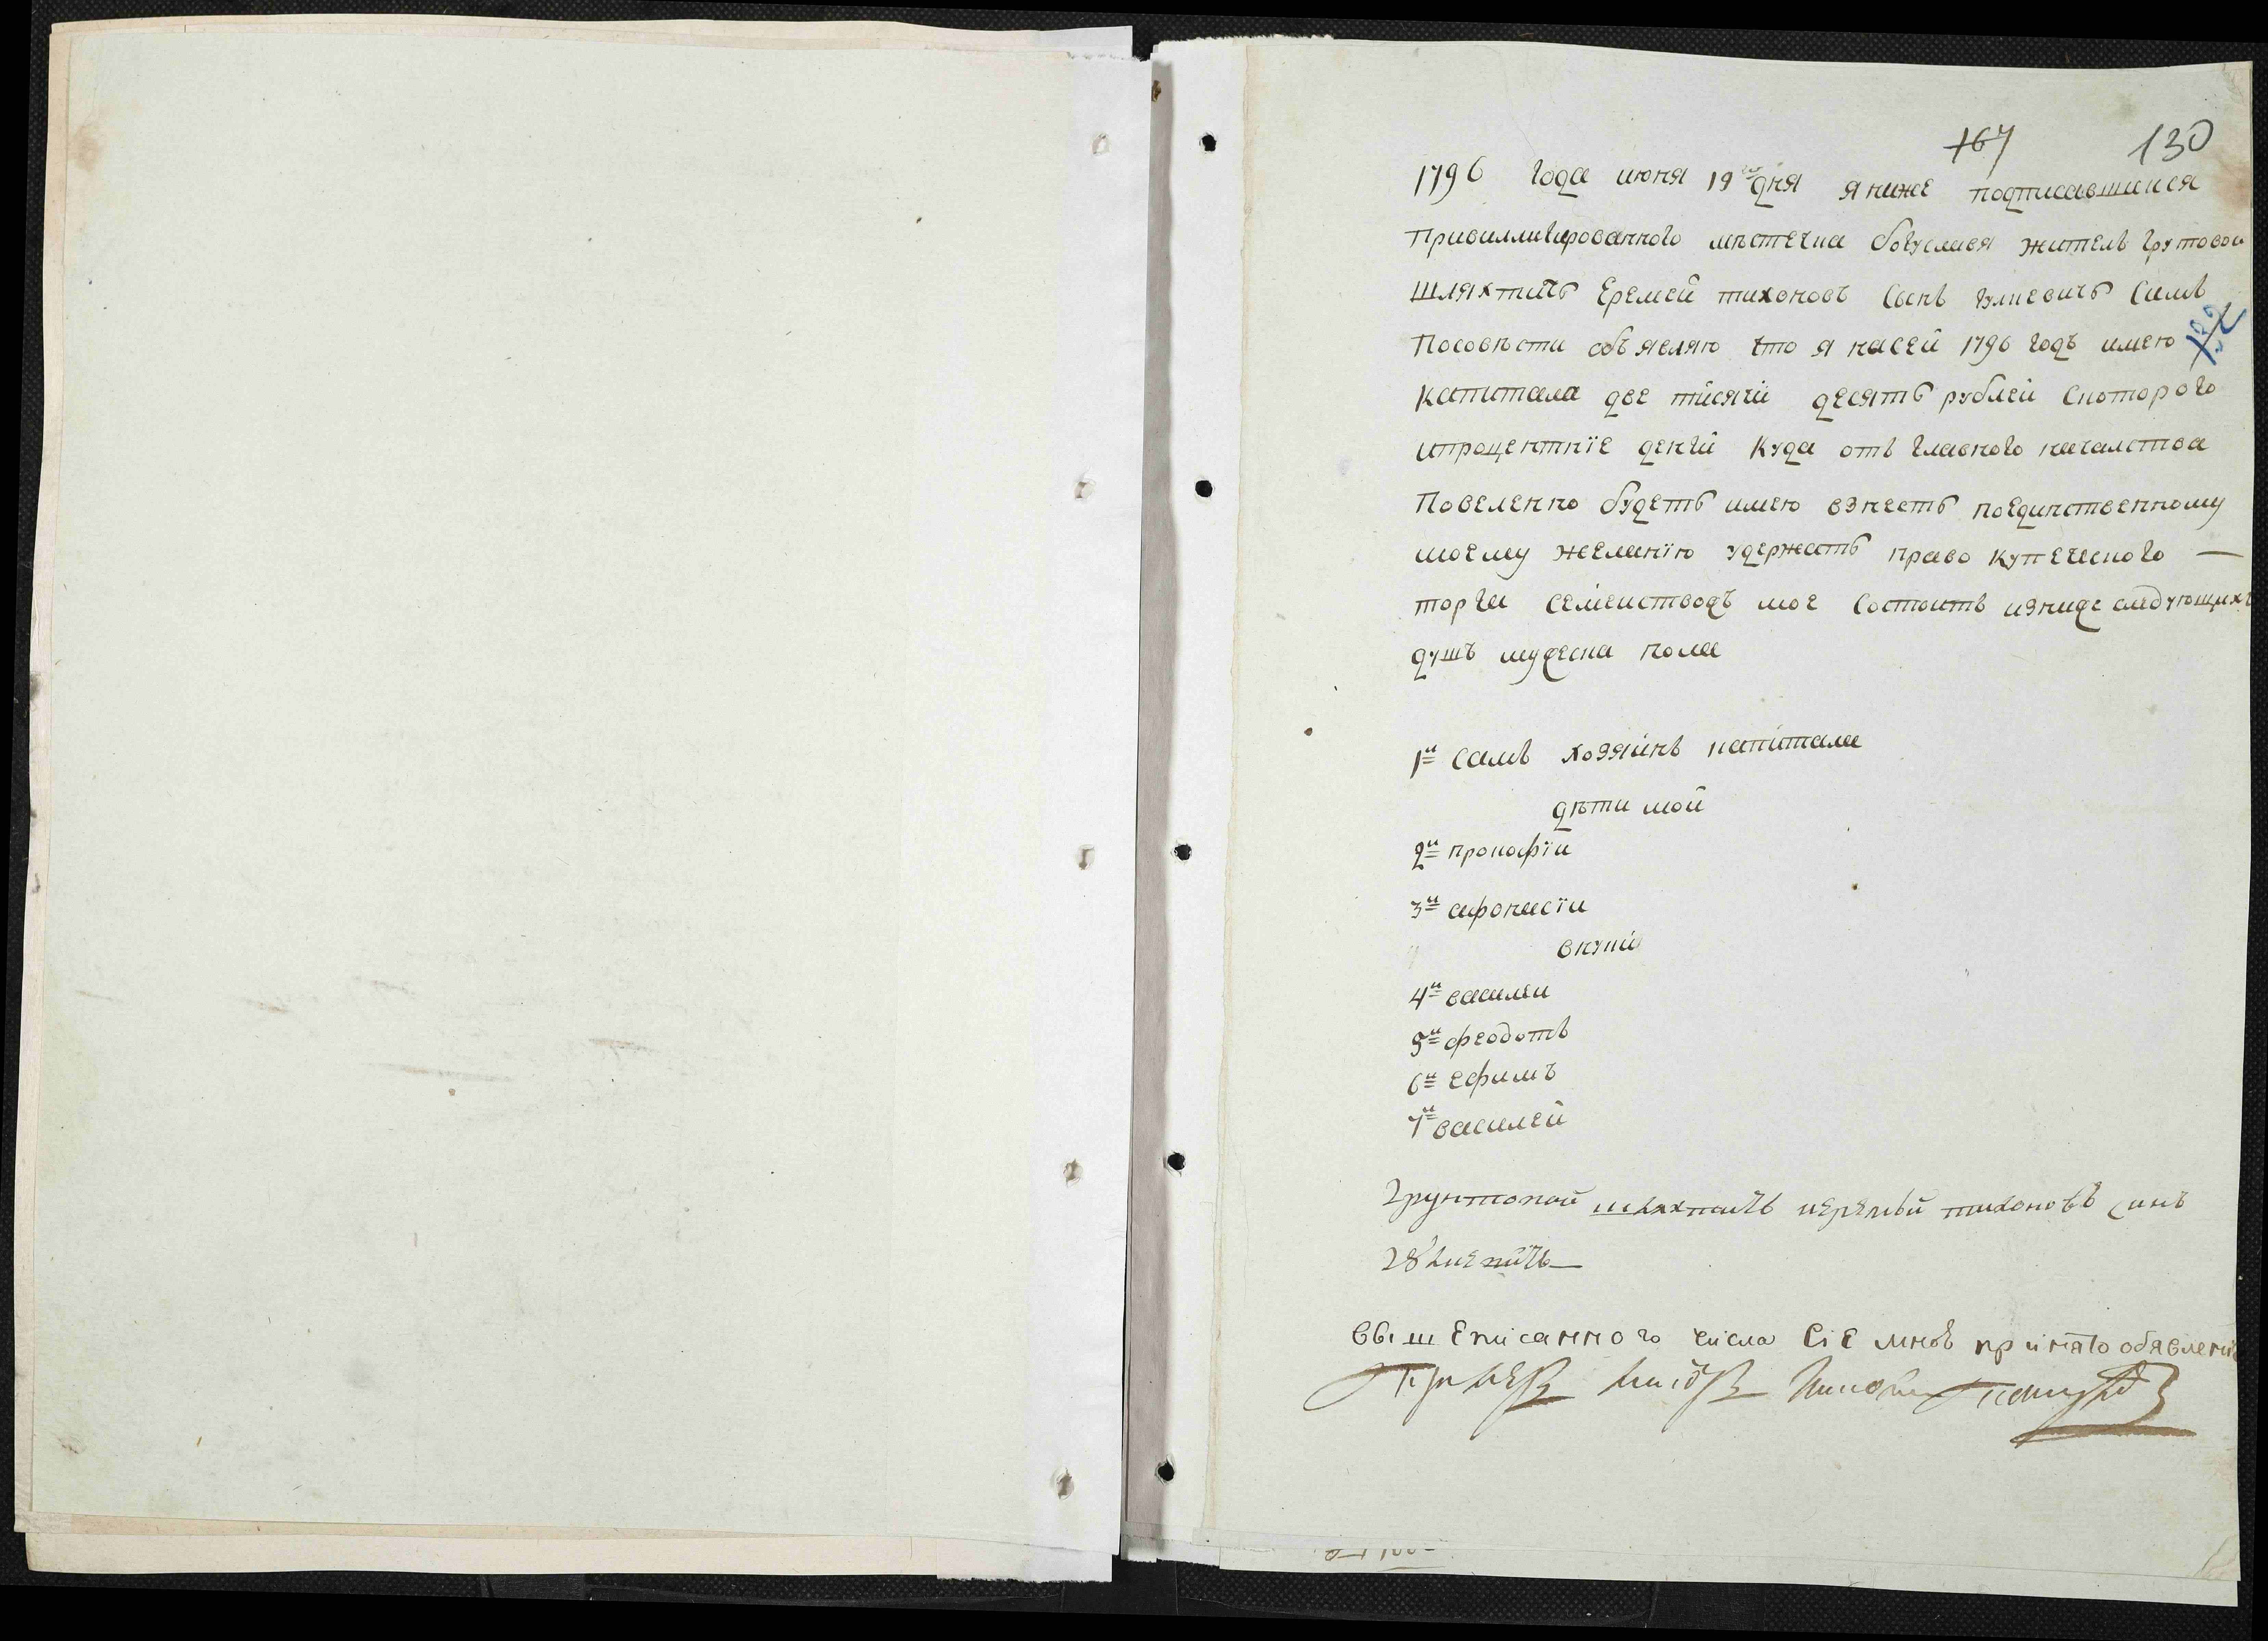 167 130
1796 года июня 19 дня я ниже подписавшиися
Привиллигированного мѣстечка богуслава жителъ грутовои
шляхтичь Еремей тихоновъ сынъ гулиевичь симъ
По совѣсти объявляю что я на сей 1796 годъ имею
132
капитала две тисячи десять рублей с которого
и процентніе денги куда отъ главного началства
Повеленно будеть имею взнесть по единственному
моему желанію удержать право купеческого —
торги семеиство мое состоитъ из ниже следующихъ
душъ мужеска пола
1й самъ хозяинъ капитала
дѣти мои
2й прокофїи
3й афонасїи
внуки
4й василеи
5й феодотъ
6й ефимъ
7й василей
грунтовой шляхтичь иеремѣй тихоновъ синъ
гȣлиевичь
вышеписанного числа сіе мною принято обявлениѣ